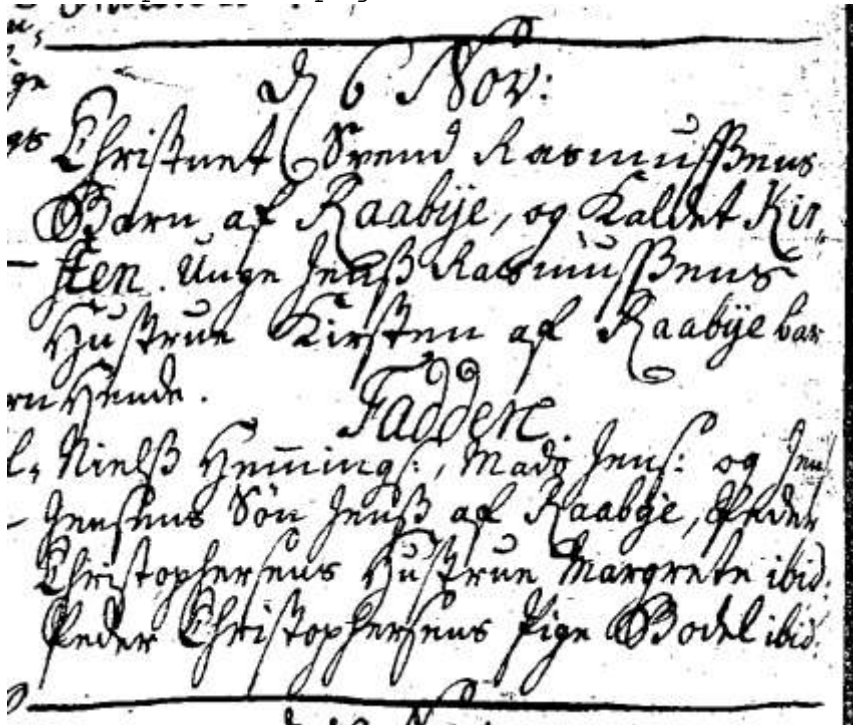 d 6 Nov:
Christnet Svend Rasmussens
Barn af Raabÿe, og Kaldet Kir,,
sten. Unge Jenss Rasmussens
Hustrue Kirsten af Raabÿe bar
Hende.
Faddere.
Nielss Hem̄ings:, Mads Jens: og Jens
Jensens Søn Jenss af Raabÿe, Peder
Christophersens Hustrue Margrete ibid:
Peder Christophersens Pige Bodel ibid: